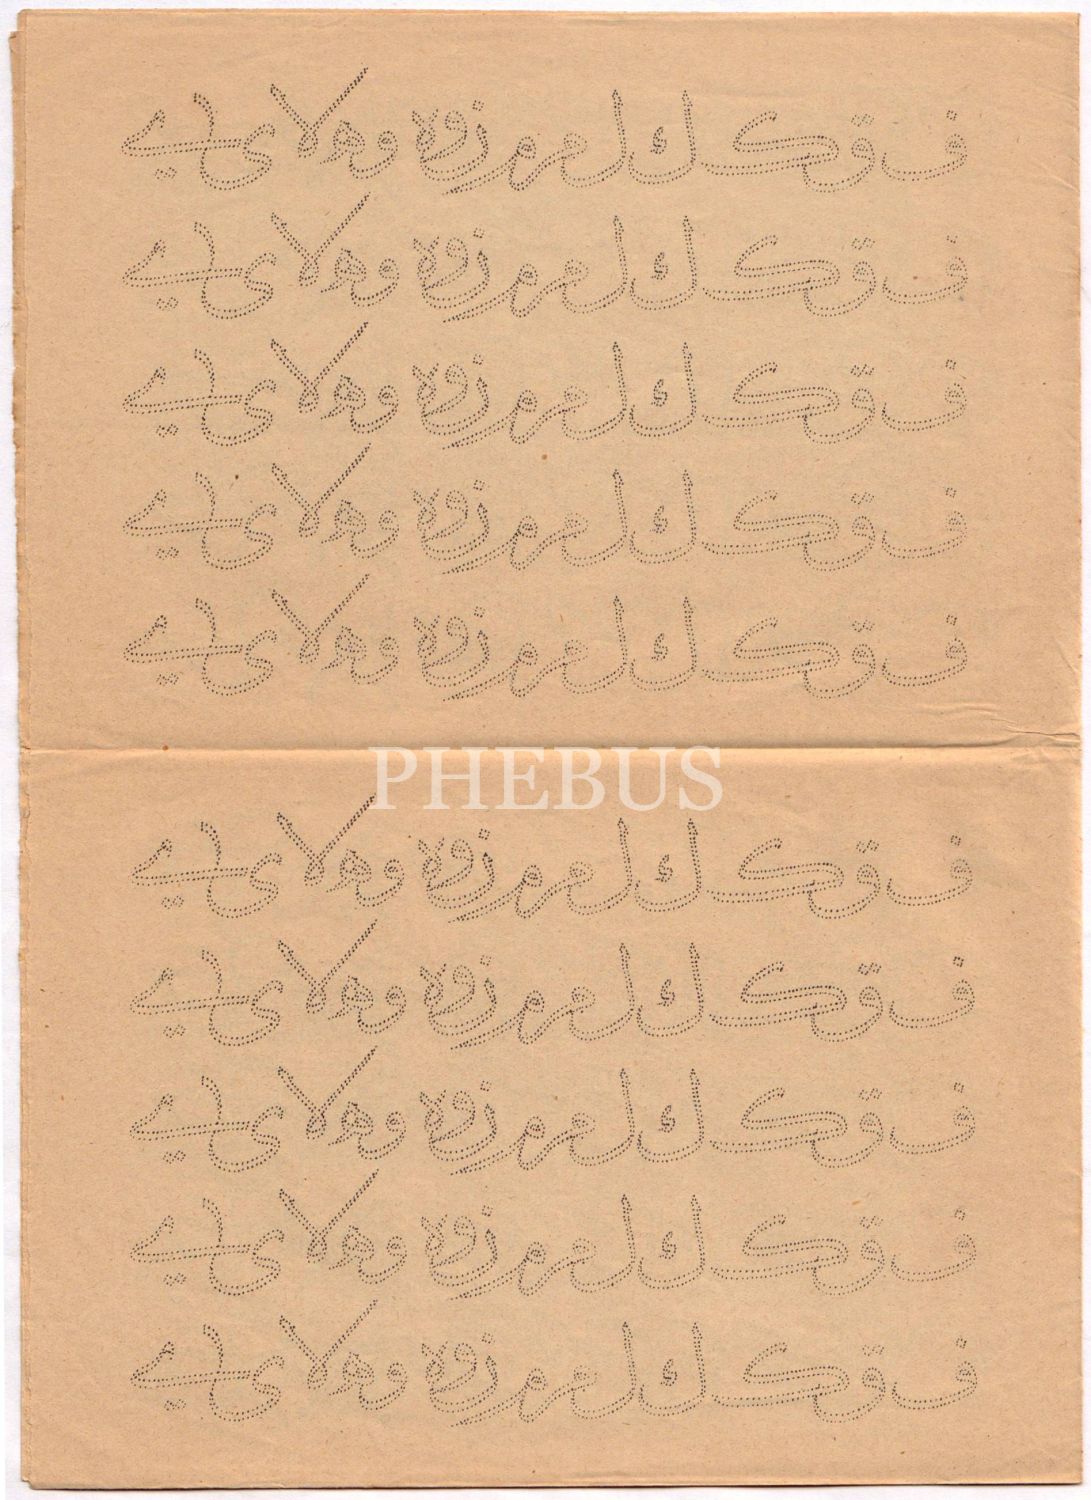 ف ق ک ك ل م م ن و ه و ه لا ى ے
ف ق ک ك ل م م ن و ه و ه لا ى ے
ف ق ک ك ل م م ن و ه و ه لا ى ے
ف ق ک ك ل م م ن و ه و ه لا ى ے
ف ق ک ك ل م م ن و ه و ه لا ى ے
PHEBUS
ف ق ک ك ل م م ن و ه و ه لا ى ے
ف ق ک ك ل م م ن و ه و ه لا ى ے
ف ق ک ك ل م م ن و ه و ه لا ى ے
ف ق ک ك ل م م ن و ه و ه لا ى ے
ف ق ک ك ل م م ن و ه و ه لا ى ے